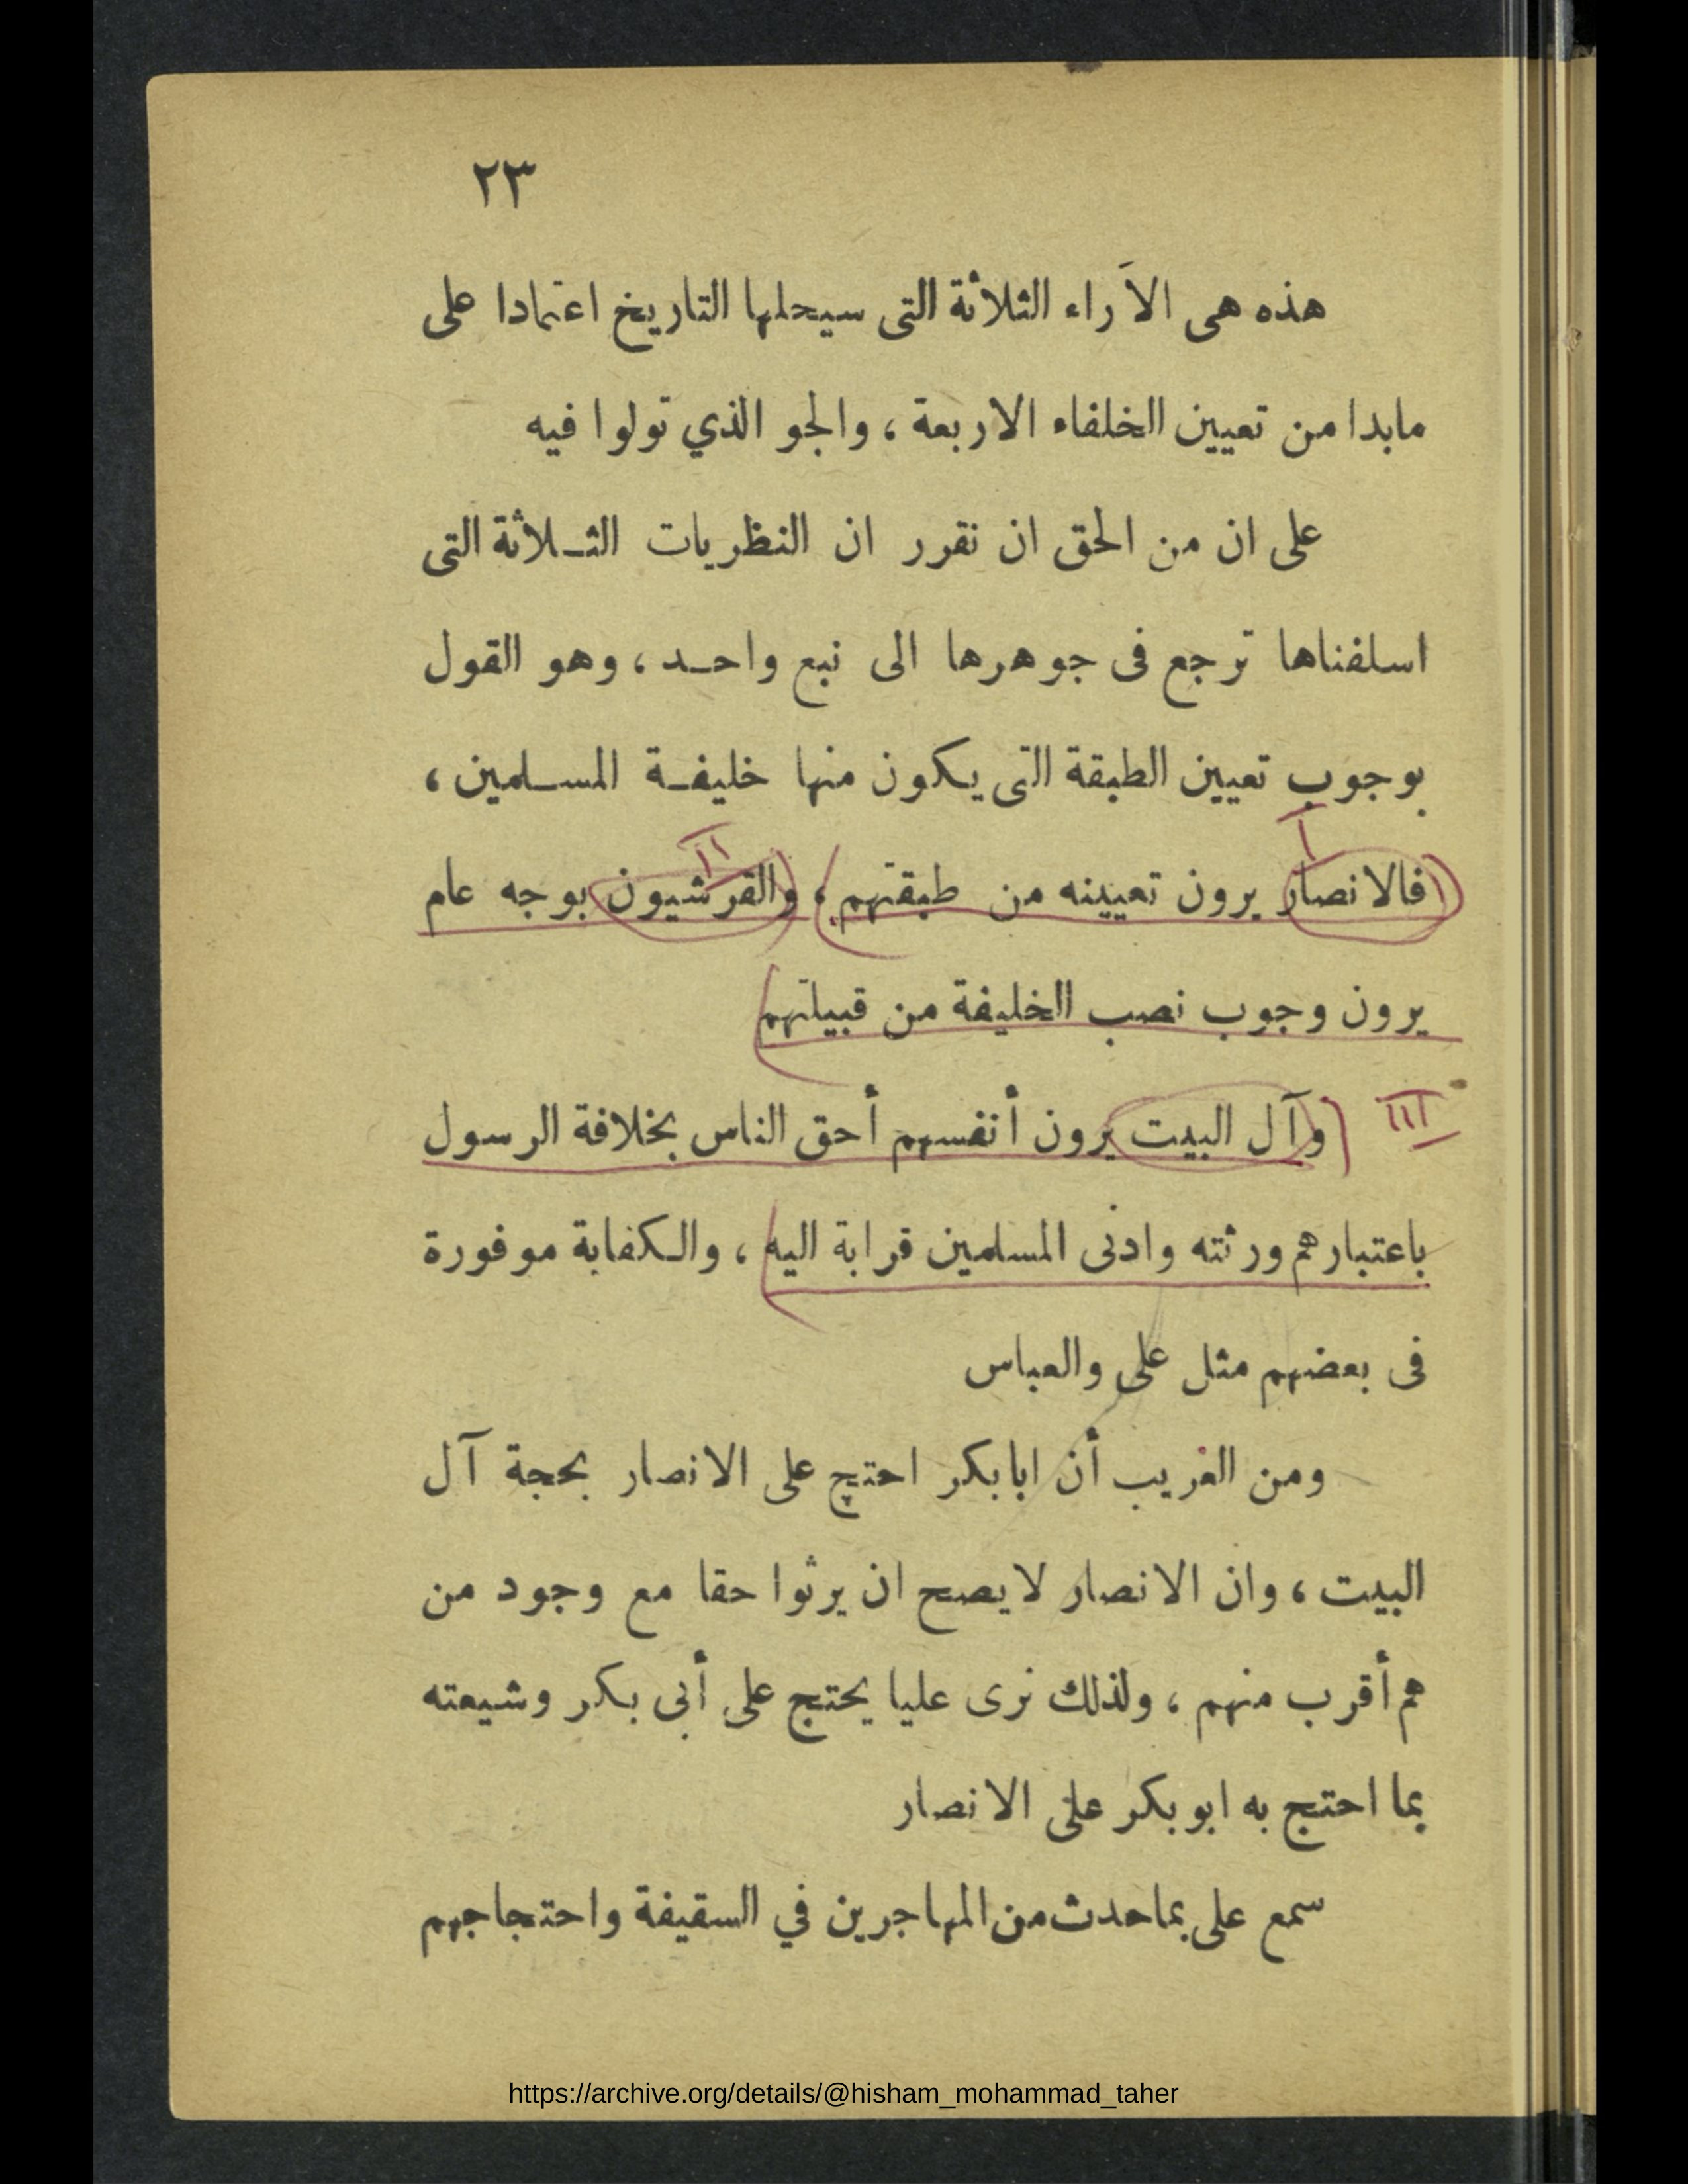 ٢٣
هذه هى الآراء الثلاثة التى سيحلها التاريخ اعتمادا على
مابدا من تعيين الخلفاء الاربعة ، والجو الذي تولوا فيه
على ان من الحق ان نقرر ان النظريات الثـلاثة التى
اسلفناها ترجع فى جوهرها الى نبع واحـد ، وهو القول
بوجوب تعيين الطبقة التى يكون منها خليفـة المسـلمين ،
I II
فالانصار يرون تعيينه من طبقتهم ، والقرشيون بوجه عام
يرون وجوب نصب الخليفة من قبيلتهم
III وآل البيت يرون أنفسهم أحق الناس بخلافة الرسول
باعتبارهم ورثته وادنى المسلمين قرابة اليه ، والـكفاية موفورة
فى بعضهم مثل على والعباس
ومن الغريب أن ابابكر احتج على الانصار بحجة آل
البيت ، وان الانصار لايصح ان يرثوا حقا مع وجود من
هم أقرب منهم ، ولذلك نرى عليا يحتج على أبى بـكر وشيعته
بما احتج به ابو بكر على الانصار
سمع على بماحدث من المهاجرين في السقيفة واحتجاجهم
https://archive.org/details/@hisham_mohammad_taher